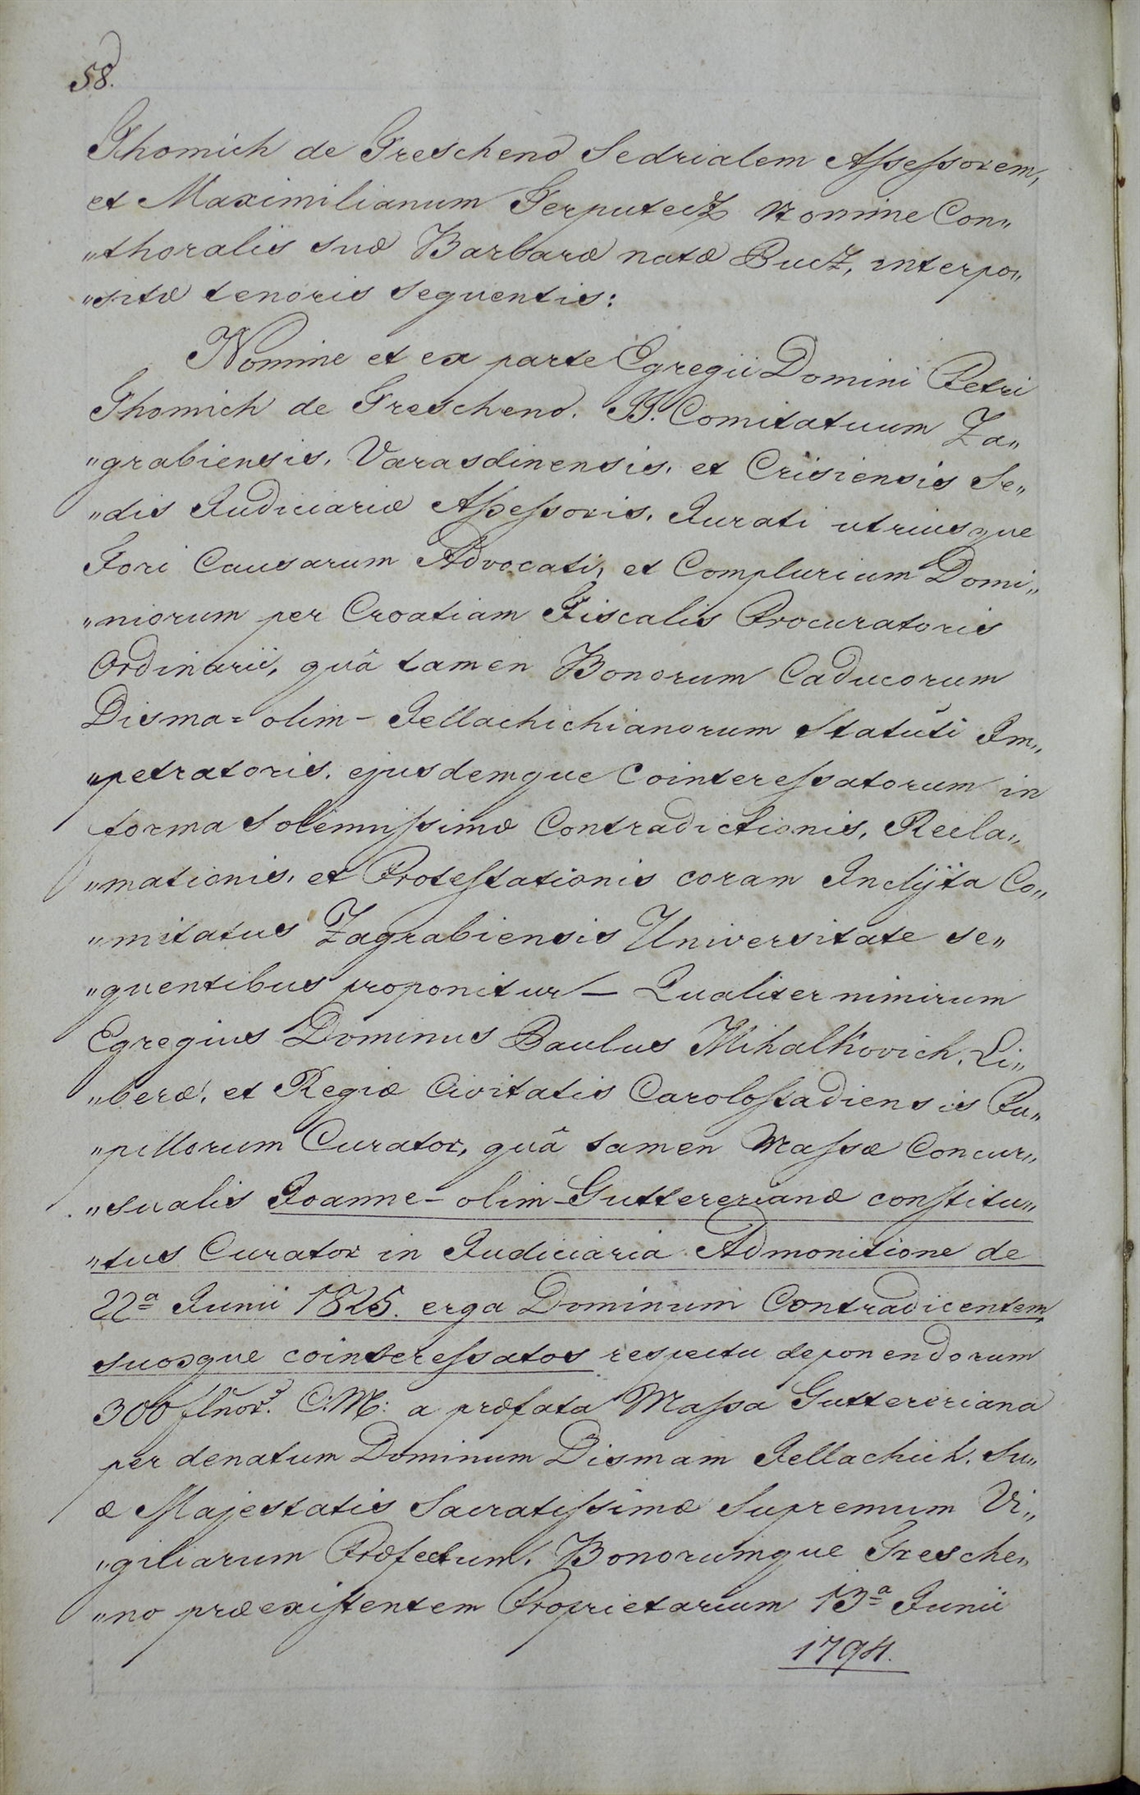 58.
Thomich de Trescheno Sedrialem Assessorem,
et Maximilianum Perputecz nomine Con„
„thoralis suæ Barbaræ natæ Bucz, interpo„
„sitæ tenoris sequentis:
Nomine et ex parte Egregii Domini Petri
Thomich de Trescheno. II. Comitatuum Za„
„grabiensis, Varasdinensis, et Crisiensis Se„
„dis Judiciariæ Assessoris, Jurati utriusque
Fori Causarum Advocati, et Complurium Domi„
„niorum per Croatiam Fiscalis Procuratoris
Ordinarii, quâ tamen Bonorum Caducorum
Disma = olim - Jellachichianorum Statuti Im„
„petratoris, ejusdemque Cointeressatorum in
forma Solemnissimæ Contradictionis, Recla„
„mationis, et Protestationis coram Inclÿta Co„
„mitatus Zagrabiensis Universitate se„
„quentibus proponitur — Qualiter nimirum
Egregius Dominus Paulus Mihalkovich, Li„
„beræ, et Regiæ Civitatis Carolostadiensis Pu„
„pillorum Curator, quâ tamen Massæ Concur„
„sualis Joanne - olim - Guttererianæ constitu„
„tus Curator in Judiciaria Admonitione de
22ª Junii 1825. erga Dominum Contradicentem,
suosque cointeressatos respectu deponendorum
300 flnor. C: M: a præfata Massa Guttereriana
per denatum Dominum Dismam Jellachich, Su„
æ Majestatis Sacratissimæ Supremum Vi„
„giliarum Præfectum, Bonorumque Tresche„
„no præexistentem Proprietarium 13ª Junii
1794.